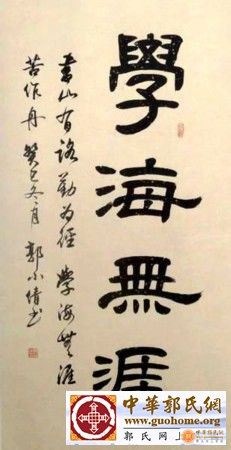 學海無涯
書山有路勤为徑 學海無涯
苦作舟 癸巳冬月 郭小倩书
中華郭氏網
www.guohome.org
郭氏网上